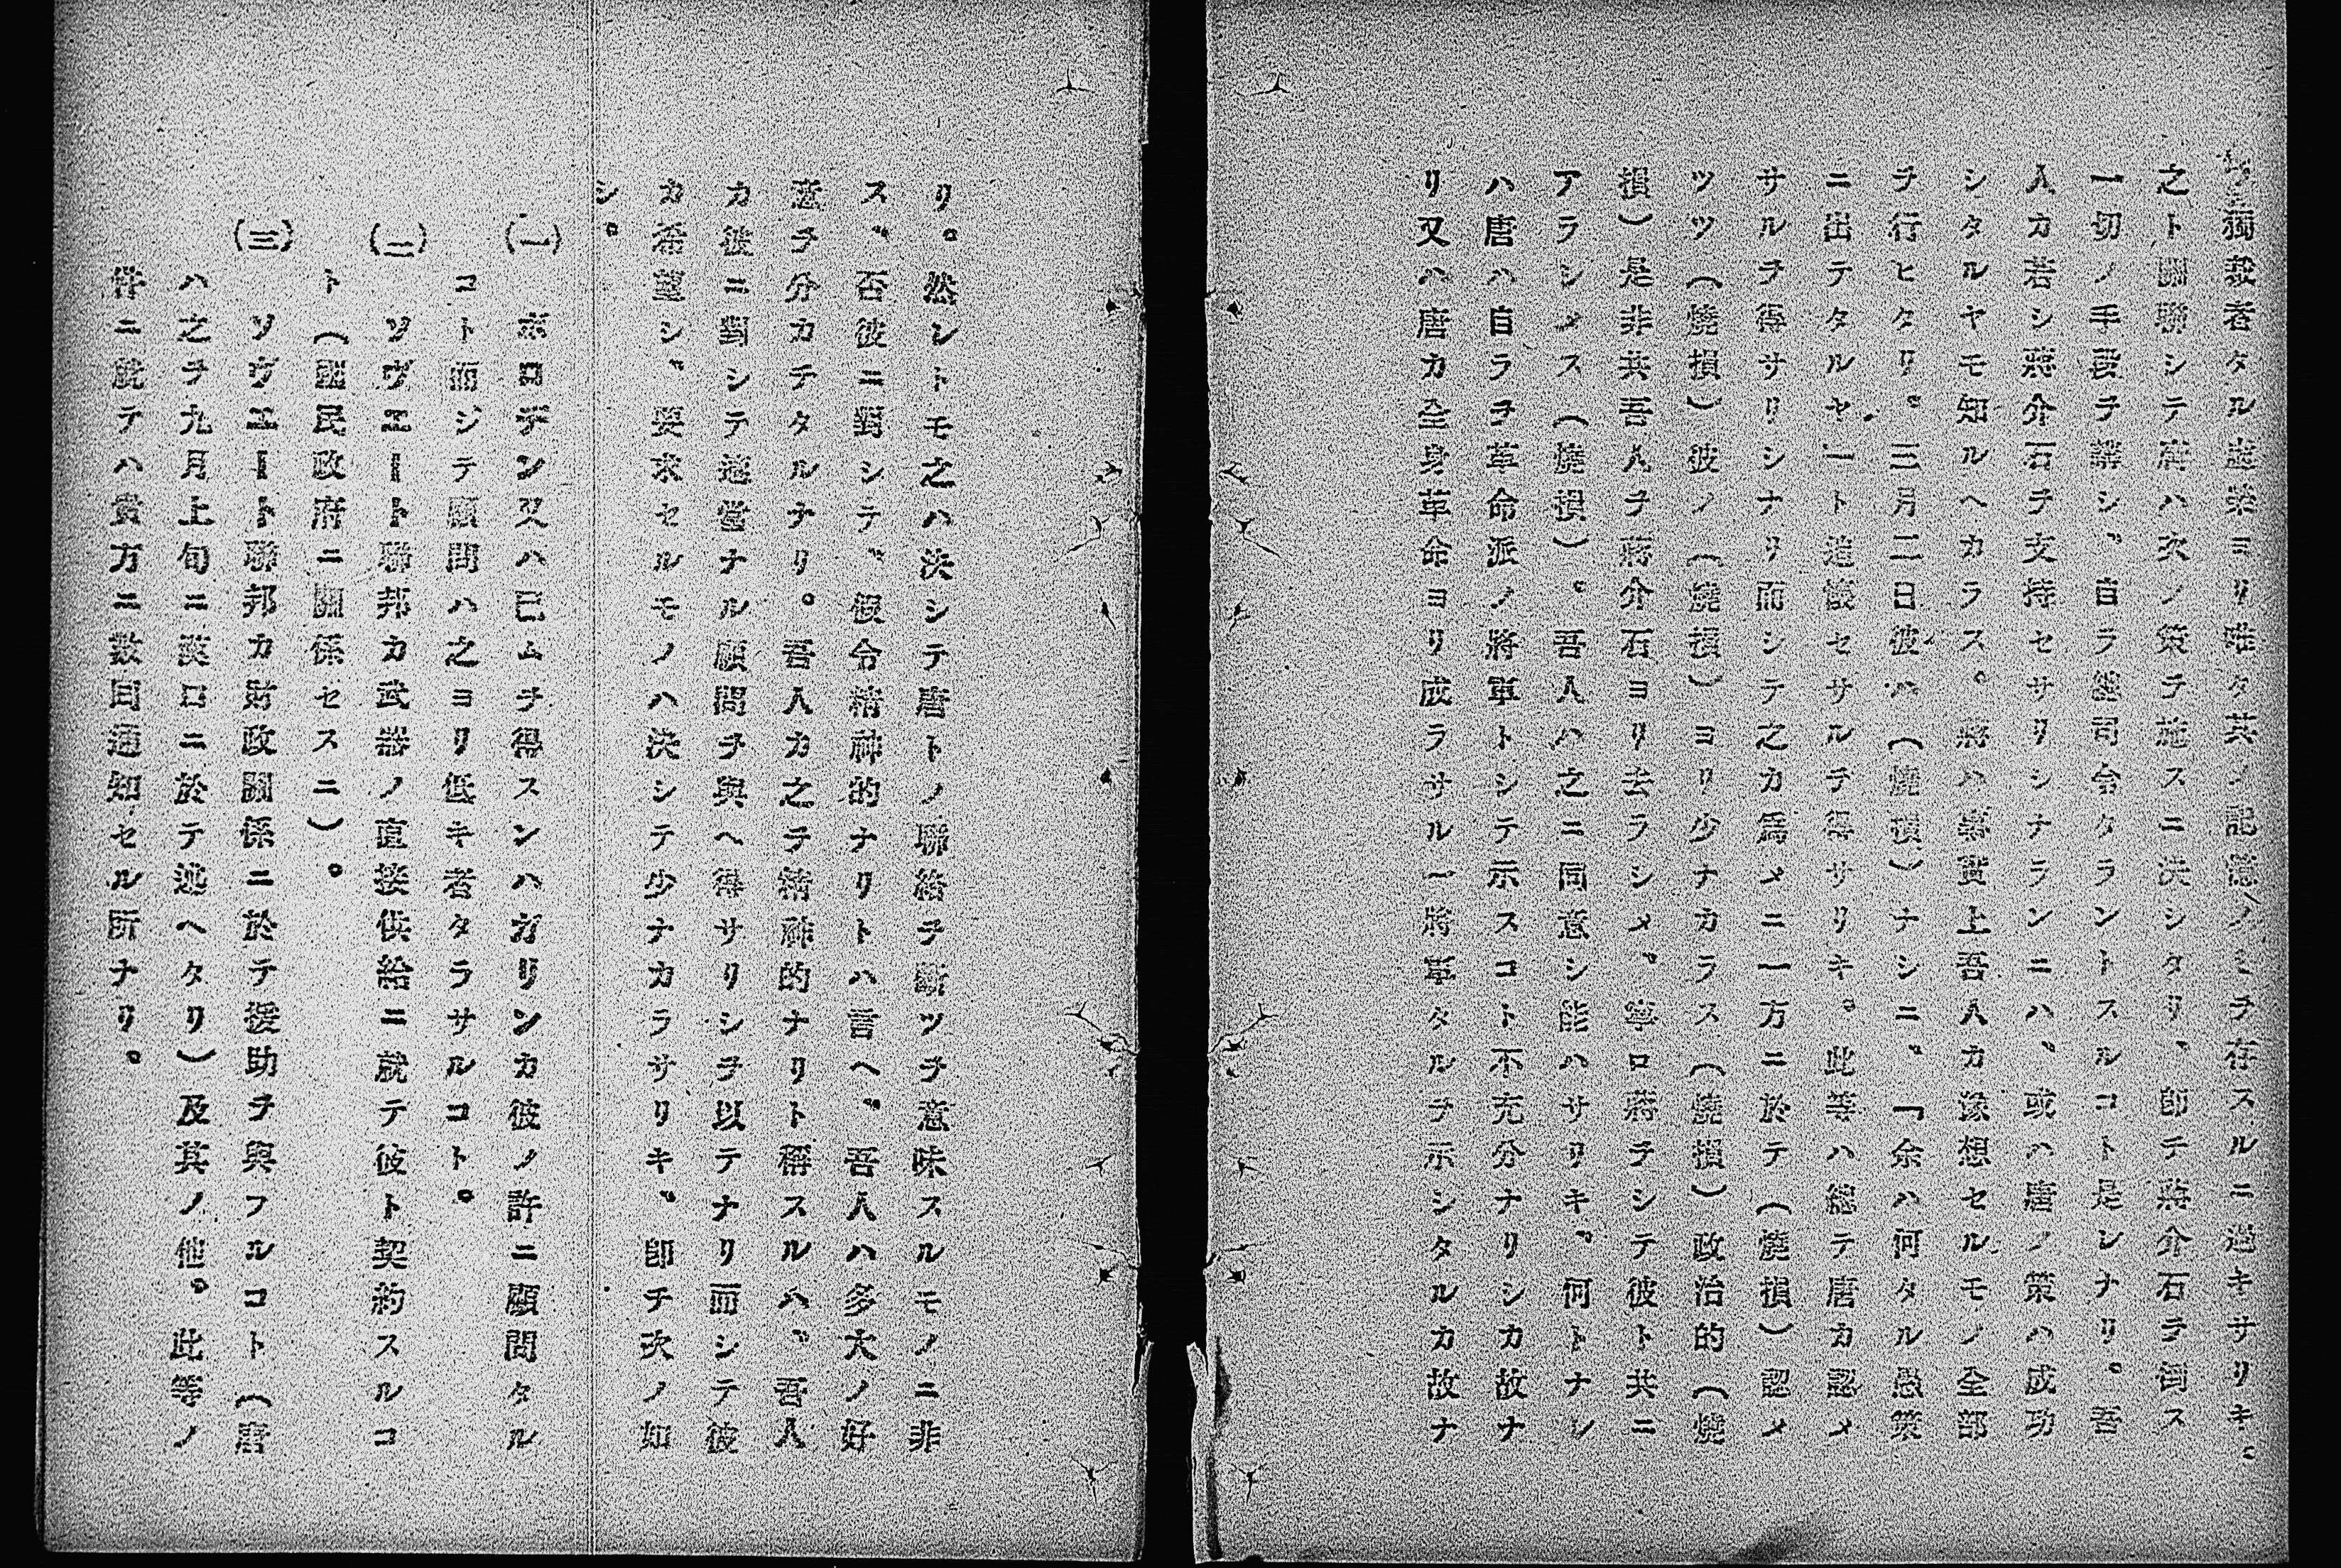 獨裁者タル遊藥ヨリ唯タ其ノ記憶ノミヲ存スルニ過キサリキ。
之ト關聯シテ蔣ハ次ノ策ヲ施スニ決シタリ、卽チ蔣介石ヲ倒ス
一切ノ手段ヲ講シ、自ラ總司令タラントスルコト是レナリ。吾
人カ若シ蔣介石ヲ支持セサリシナランニハ、或ハ唐ノ策ハ成功
シタルヤモ知ルヘカラス。蔣ハ事實上吾人カ豫想セルモノ全部
ヲ行ヒタリ。三月二日彼ハ(燒損)ナシニ。「余ハ何タル愚策
ニ出テタルヤ」ト追懷セサルヲ得サリキ。此等ハ總テ唐カ認メ
サルヲ得サリシナリ而シテ之カ爲メニ一方ニ於テ(燒損)認メ
ツツ(燒損)彼ノ(燒損)ヨリ少ナカラス(燒損)政治的(燒
損)是非共吾人ヲ蔣介石ヨリ去ラシメ、寧ロ蔣ヲシテ彼ト共ニ
アラシメス(燒損)。吾人ハ之ニ同意シ能ハサリキ、何トナレ
ハ唐ハ自ラヲ革命派ノ將軍トシテ示スコト不充分ナリシカ故ナ
リ又ハ唐カ全身革命ヨリ成ラサル一將軍タルヲ示シタルカ故ナ
リ。然レトモ之ハ決シテ唐トノ聯絡ヲ斷ツヲ意味スルモノニ非
ス、否彼ニ對シテ、假令精神的ナリトハ言ヘ、吾人ハ多大ノ好
意ヲ分カチタルナリ。吾人カ之ヲ精神的ナリト稱スルハ、吾人
カ彼ニ對シテ適當ナル顧問ヲ與ヘ得サリシヲ以テナリ而シテ彼
カ希望シ、要求セルモノハ決シテ少ナカラサリキ、卽チ次ノ如
シ。
(一) ボロヂン又ハ已ムヲ得スンハガリンカ彼ノ許ニ顧問タル
コト而シテ顧問ハ之ヨリ低キ者タラサルコト。
(二) ソヴエート聯邦カ武器ノ直接供給ニ就テ彼ト契約スルコ
ト(國民政府ニ關係セスニ)。
(三) ソヴエート聯邦カ財政關係ニ於テ援助ヲ與フルコト(唐
ハ之ヲ九月上旬ニ漢口ニ於テ述ヘタリ)及其ノ他。此等ノ
件ニ就テハ貴方ニ數回通知セル所ナリ。